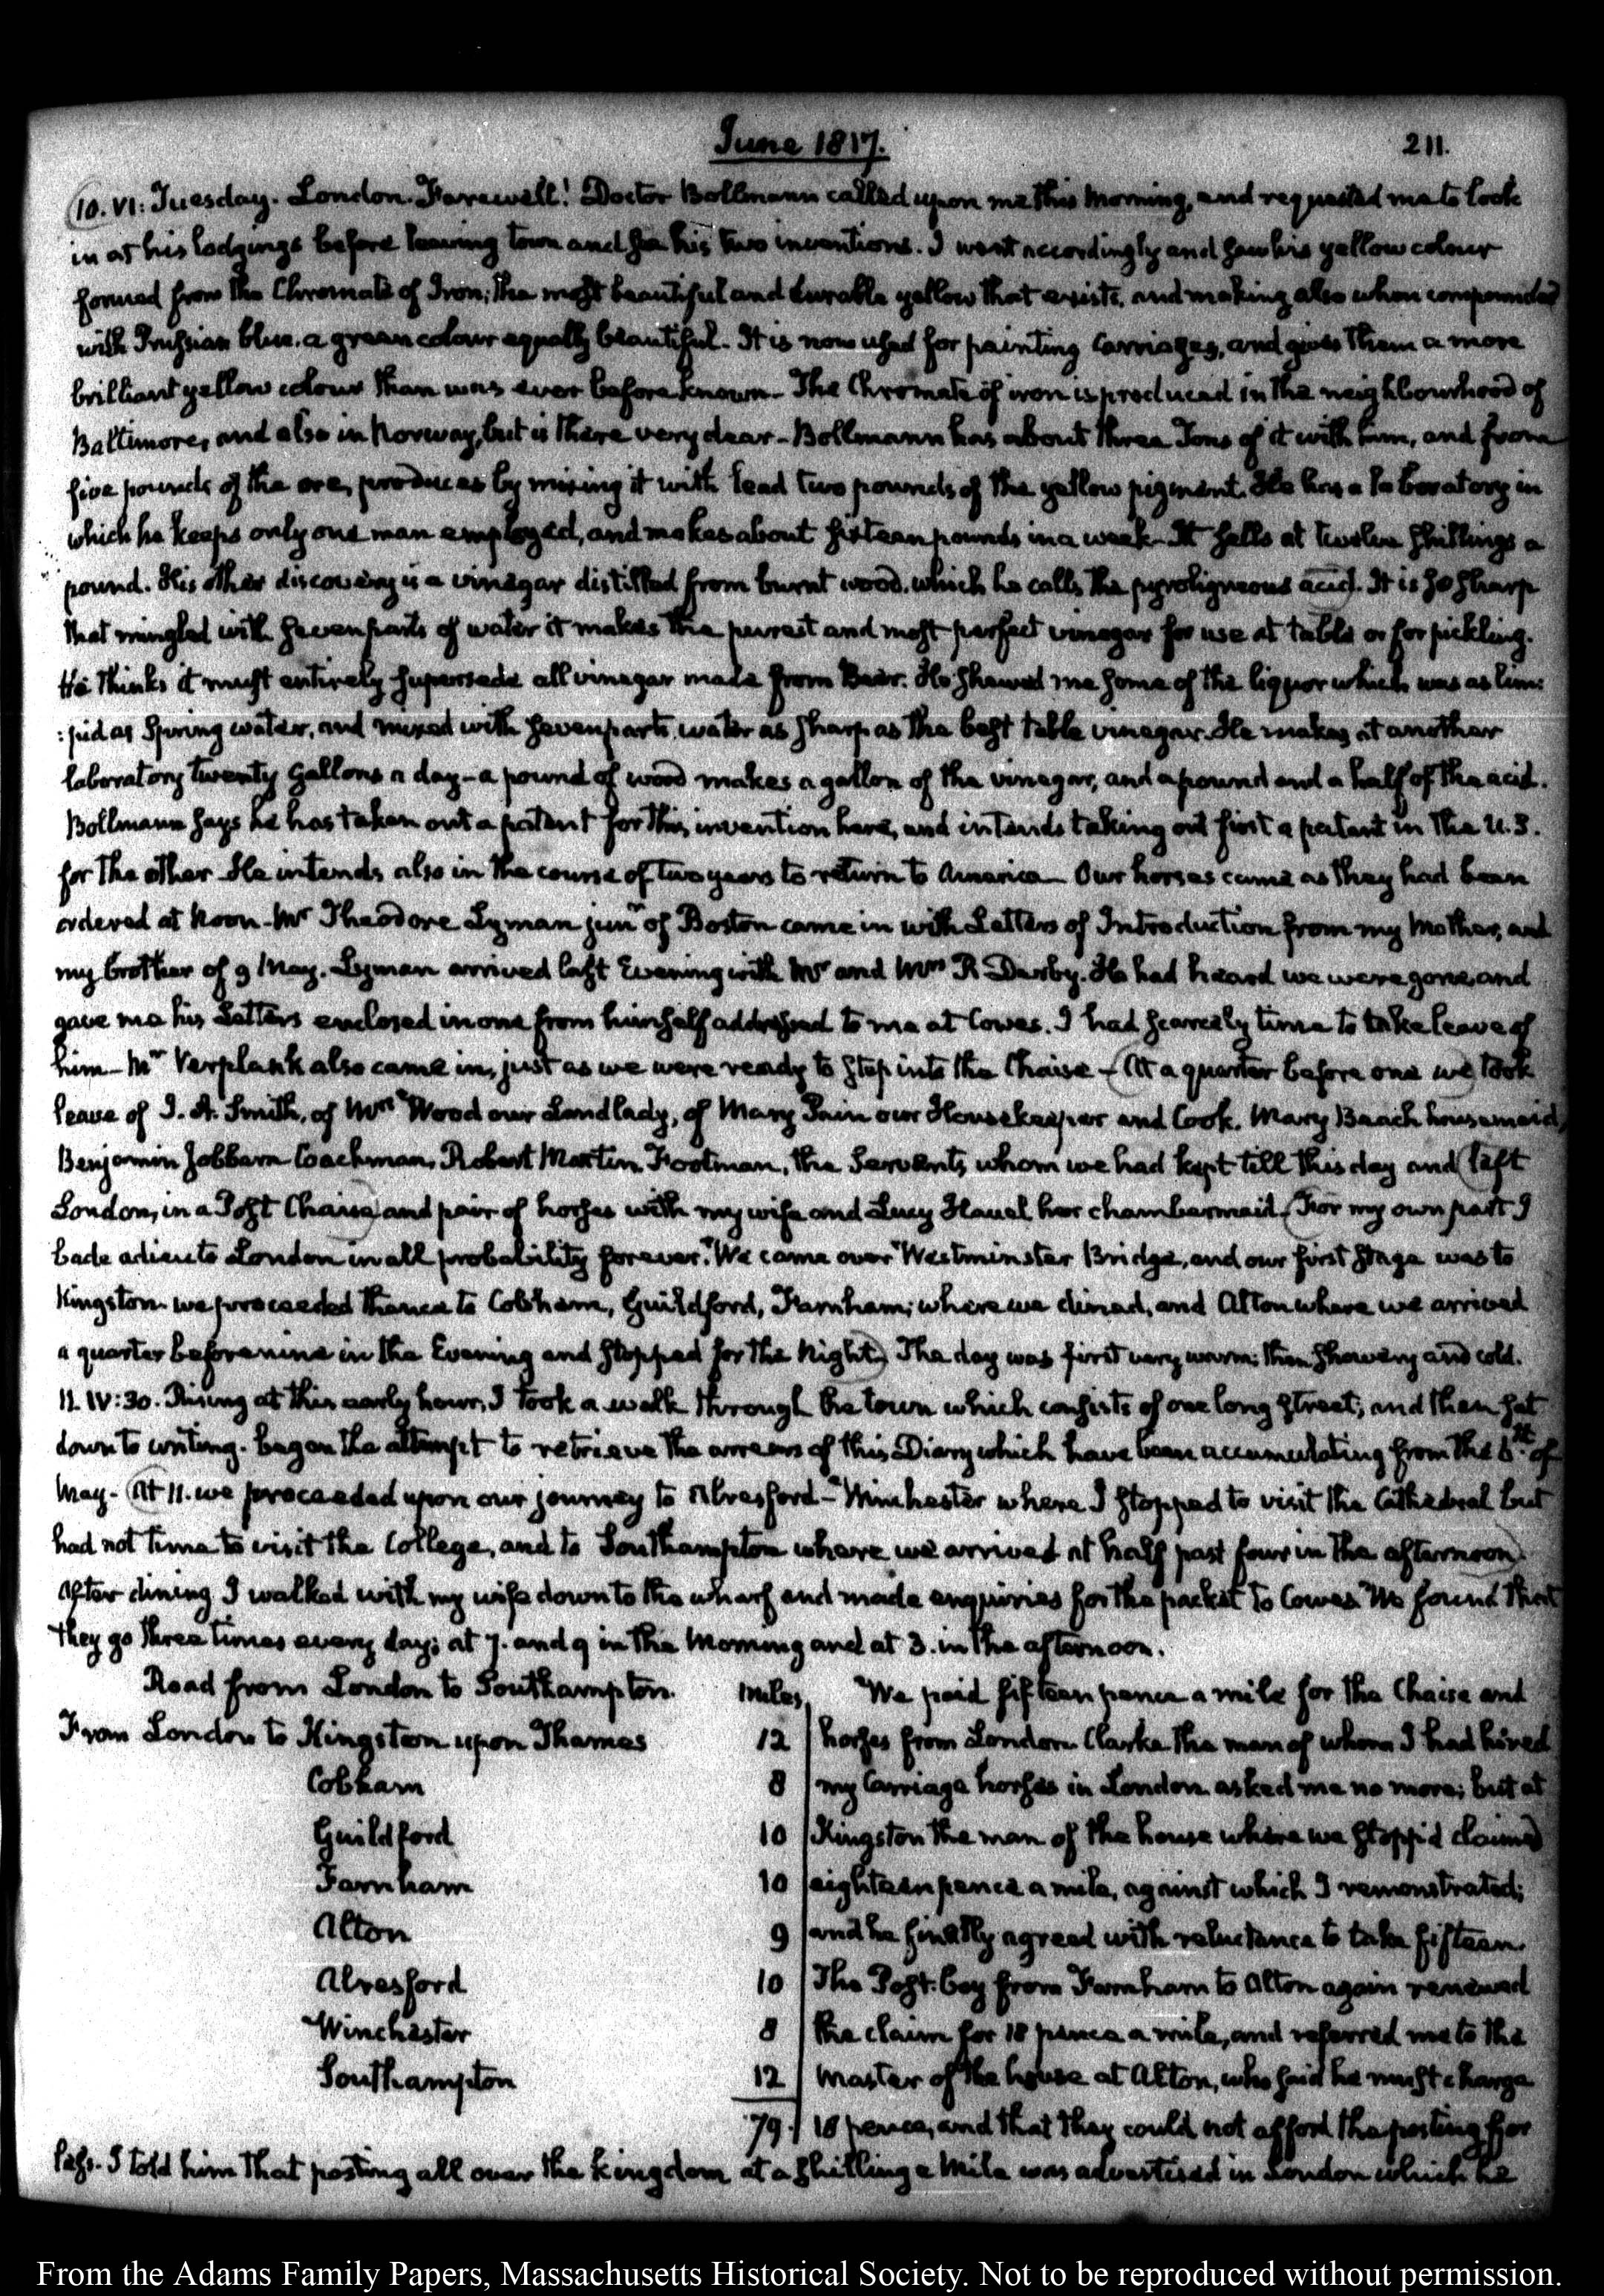 June 1817.
211.
10. VI: Tuesday. London. Farewell! Doctor Bollmann called upon me this Morning, and requested me to look
in at his lodgings before leaving town and see his two inventions. I went accordingly and saw his yellow colour
formed from the Chromate of Iron; the most beautiful and durable yellow that exists, and making also when compounded
with Prussian blue, a green colour equally beautiful. It is now used for painting Carriages, and gives them a more
brilliant yellow colour than was ever before known. The Chromate of iron is produced in the neighbourhood of
Baltimore, and also in Norway, but is there very dear. Bollmann has about three Tons of it with him, and from
five pounds of the ore, produces by mixing it with lead two pounds of the yellow pigment. He has a laboratory in
which he keeps only one man employed, and makes about sixteen pounds in a week. It sells at twelve shillings a
pound. His other discovery is a vinegar distilled from burnt wood, which he calls the pyroligneous acid. It is so sharp
that mingled with seven parts of water it makes the purest and most perfect vinegar for use at table or for pickling.
He thinks it must entirely supersede all vinegar made from Beer. He shewed me some of the liquor which was as lim:
:pid as Spring water, and mixed with seven parts water as sharp as the best table vinegar. He makes at another
laboratory twenty gallons a day – a pound of wood makes a gallon of the vinegar, and a pound and a half of the acid.
Bollmann says he has taken out a patent for this invention here, and intends taking out first a patent in the U.S.
for the other. He intends also in the course of two years to return to America – Our horses came as they had been
ordered at Noon. Mr Theodore Lyman junr of Boston came in with Letters of Introduction from my Mother, and
my brother of 9 May. Lyman arrived last Evening with Mr and Mrs R Derby. He had heard we were gone, and
gave me his Letters enclosed in one from himself addressed to me at Cowes. I had scarcely time to take leave of
him – Mr Verplank also came in, just as we were ready to step into the Chaise – At a quarter before one we took
leave of J. A. Smith, of Mrs Wood our Landlady, of Mary Pain our Housekeeper and Cook, Mary Beach housemaid,
Benjamin Jobbern Coachman, Robert Martin Footman, the Servants whom we had kept till this day and left
London, in a Post Chaise and pair of horses with my wife and Lucy Houel her chambermaid. For my own part I
bade adieu to London in all probability forever. We came over Westminster Bridge, and our first stage was to
Kingston. we proceeded thence to Cobham, Guildford, Farnham; where we dined, and Alton where we arrived
a quarter before nine in the Evening and stopped for the Night. The day was first very warm; then showery and cold.
11. IV:30. Rising at this early hour, I took a walk through the town which consists of one long street; and then sat
down to writing. began the attempt to retrieve the arrears of this Diary which have been accumulating from the 6th of
May. At 11. we proceeded upon our journey to Alresford – Winchester where I stopped to visit the Cathedral but
had not time to visit the College, and to Southampton where we arrived at half past four in the afternoon.
After dining I walked with my wife down to the wharf and made enquiries for the packet to Cowes. We found that
they go three times every day; at 7. and 9 in the Morning and at 3. in the afternoon.
Road from London to Southampton. Miles,
From London to Kingston upon Thames 12
Cobham 8
Guildford 10
Farnham 10
Alton 9
Alresford 10
Winchester 8
Southampton 12
79.
We paid fifteen pence a mile for the Chaise and
horses from London. Clarke the man of whom I had hired
my Carriage horses in London asked me no more; but at
Kingston the man of the house where we stopp'd claimed
eighteen pence a mile, against which I remonstrated;
and he finally agreed with reluctance to take fifteen.
The Post-boy from Farnham to Alton again renewed
the claim for 18 pence a mile, and referred me to the
Master of the house at Alton, who said he must charge
18 pence, and that they could not afford the posting for
less. I told him that posting all over the kingdom at a shilling a Mile was advertised in London which he
From the Adams Family Papers, Massachusetts Historical Society. Not to be reproduced without permission.